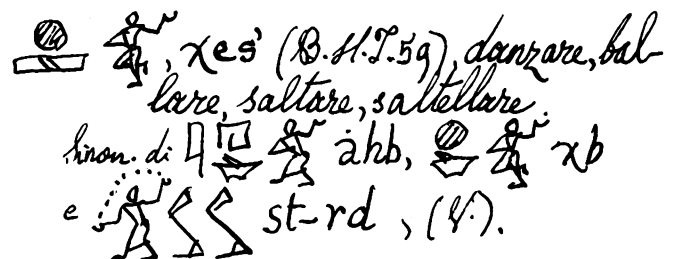 𓐍𓊃𓀠, χes' (B.H.I.59), danzare, bal-
lare, saltare, saltellare.
Sinon. di 𓇋𓉔𓃀𓀠 ȧhb, 𓐍𓃀𓀠 χb
e st-rd, (V.).